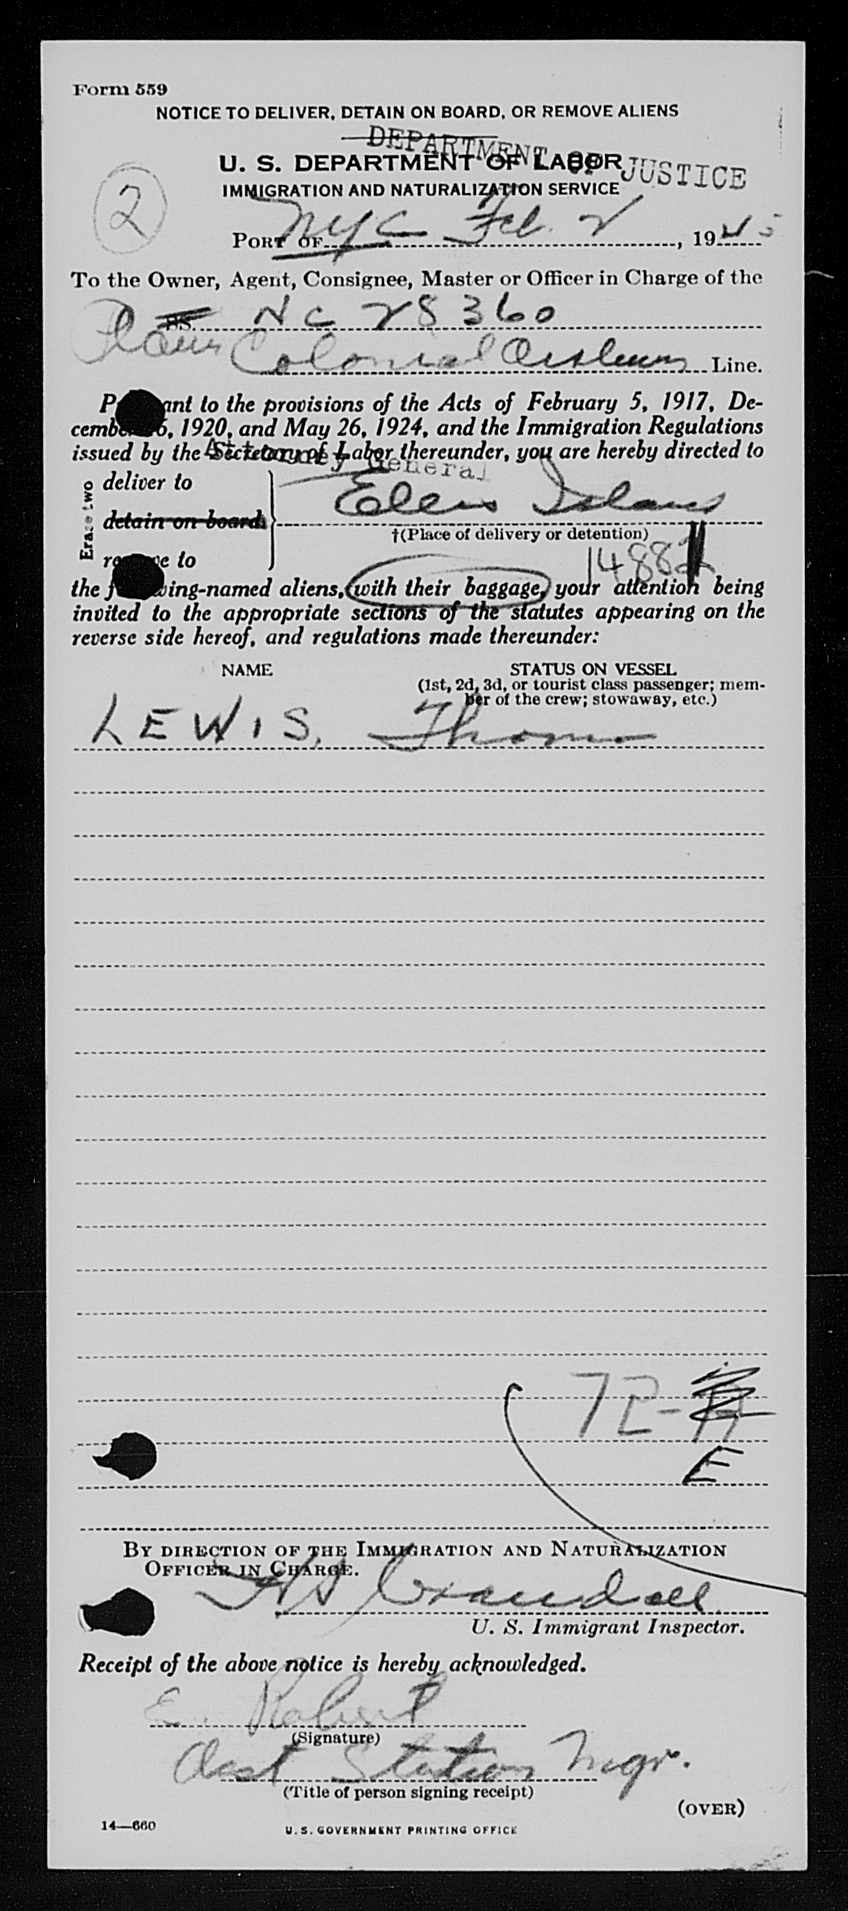 Form 559
NOTICE TO DELIVER, DETAIN ON BOARD, OR REMOVE ALIENS
DEPARTMENT OF JUSTICE
U. S. DEPARTMENT OF LABOR
IMMIGRATION AND NATURALIZATION SERVICE
2
PORT OF NYC Feb. 2, 1945
To the Owner, Agent, Consignee, Master or Officer in Charge of the
Plane SS. NC 28360
Colonial Airlines Line.
Pursuant to the provisions of the Acts of February 5, 1917, De-
cember 26, 1920, and May 26, 1924, and the Immigration Regulations
issued by the Secretary of Labor thereunder, you are hereby directed to
Attorney General
Erase two
deliver to
detain on board
remove to
Ellis Island
†(Place of delivery or detention)
1488
the following-named aliens, with their baggage, your attention being
invited to the appropriate sections of the statutes appearing on the
reverse side hereof, and regulations made thereunder:
NAME STATUS ON VESSEL
(1st, 2d, 3d, or tourist class passenger; mem-
ber of the crew; stowaway, etc.)
LEWIS, Thomas
72-
E
BY DIRECTION OF THE IMMIGRATION AND NATURALIZATION
OFFICER IN CHARGE.
Crandall
U. S. Immigrant Inspector.
Receipt of the above notice is hereby acknowledged.
E. Robert
(Signature)
Asst Station Mgr.
(Title of person signing receipt)
(OVER)
14—660
U. S. GOVERNMENT PRINTING OFFICE